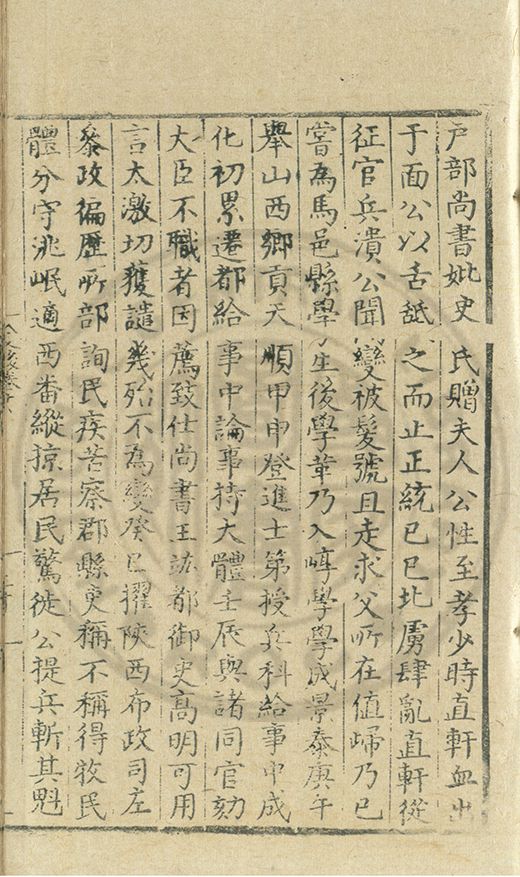 户部尚書妣史氏贈夫人公性至孝少時直軒血出
于面公以舌舐之而止正統已巳北虜肆亂直軒從
征官兵潰公聞變被髮號且走求父所在值歸乃已
嘗為馬邑縣學生後學革乃入崞學學成景泰庚午
舉山西鄉貢天順甲申登進士第授兵科給事中成
化初累遷都給事中論事持大體壬辰與諸同官劾
大臣不職者因薦致仕尚書王竑都御史高明可用
言太激切獲譴幾殆不為變癸巳擢陝西布政司左
叅政徧歷所部詢民疾苦察郡縣吏稱不稱得牧民
體分守洮岷適西番縱掠居民驚徙公提兵斬其魁